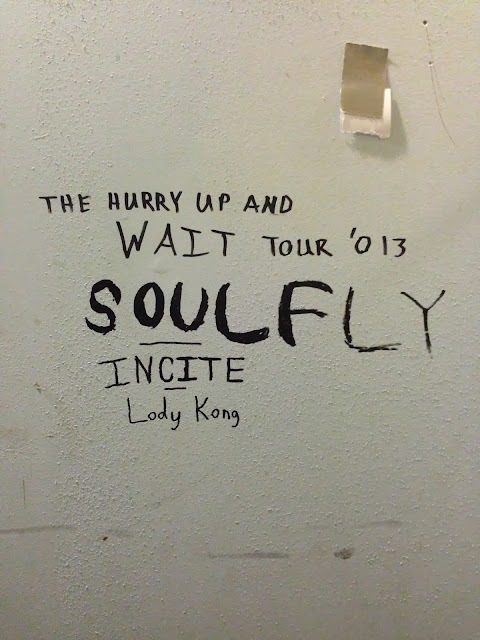 THE HURRY UP AND
WAIT TOUR '013
SOULFLY
INCITE
Lody Kong